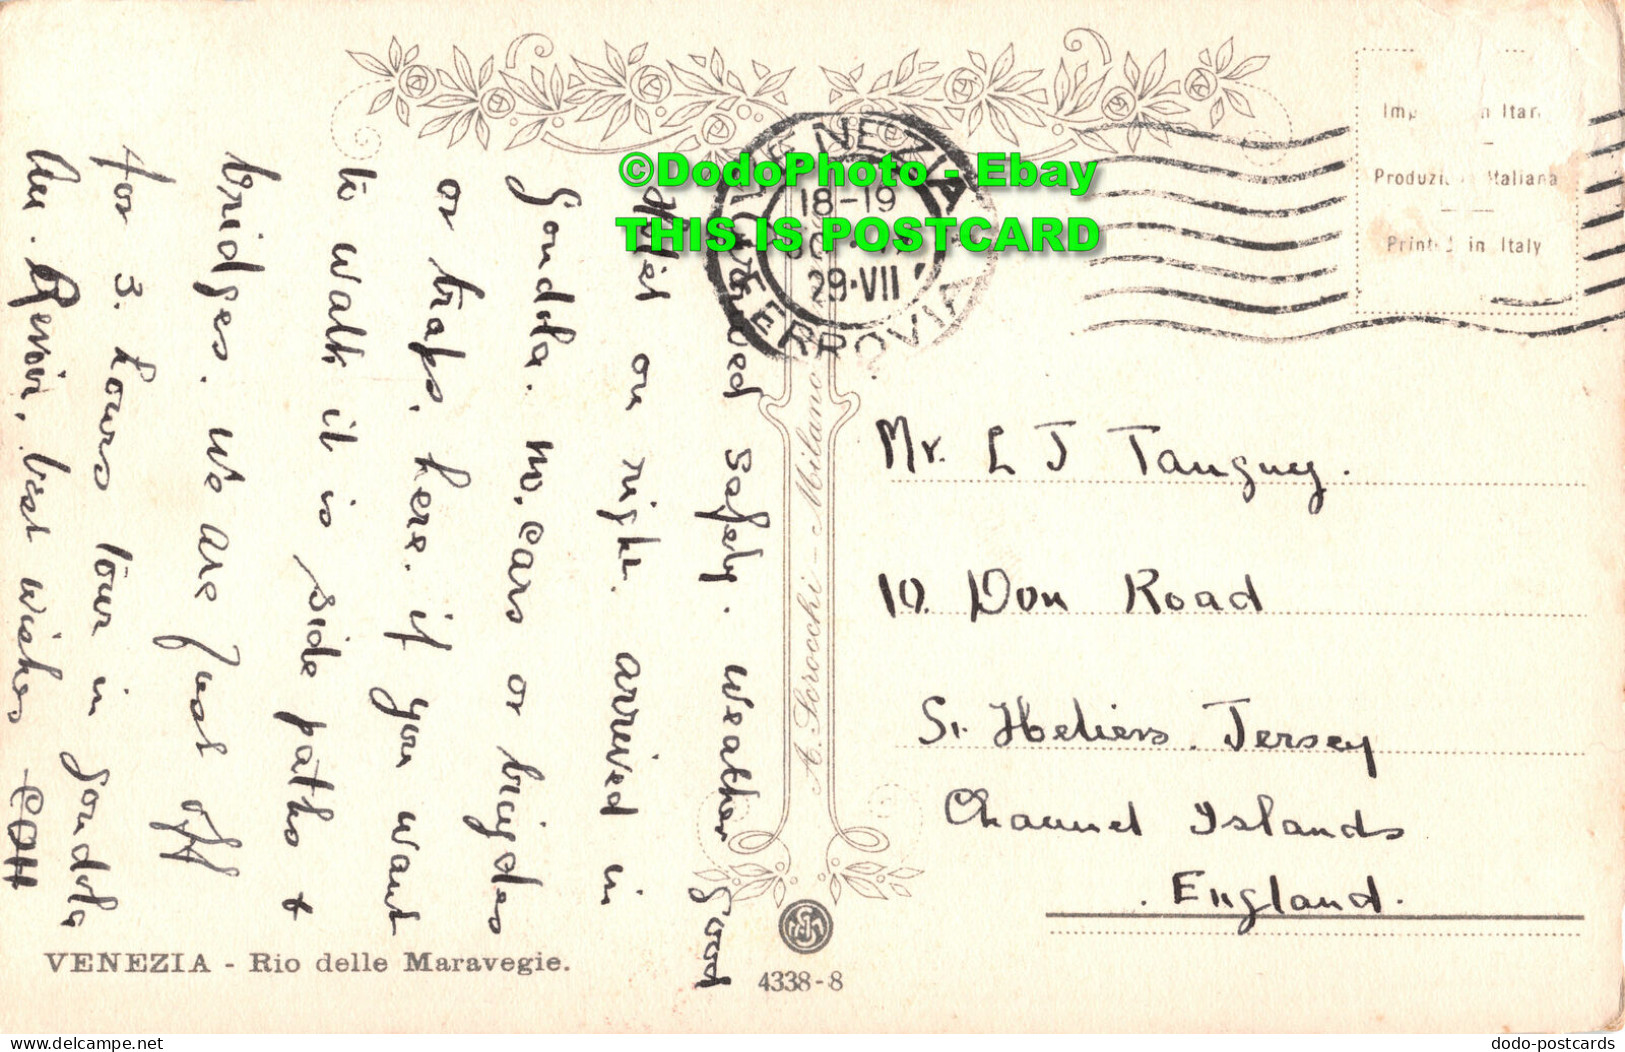 Imp n Ital
Produzi Italiana
Printed in Italy
VENEZIA
FERROVIA
18-19
29·VII
©DodoPhoto - Ebay
THIS IS POSTCARD
arrived safely. Weather Good
on right. arrived in
Gondola. No. Cars or bicycles
or traps. here. if you want
to walk it is side paths &
bridges. We are Just off
for 3. hours tour in gondola
best wishes COH
A. Scrocchi - Milano
Mr. L J Tanguy.
10. Don Road
St. Heliers. Jersey
Channel Islands
. England.
VENEZIA - Rio delle Maravegie.
4338-8
delcampe.net
dodo-postcards